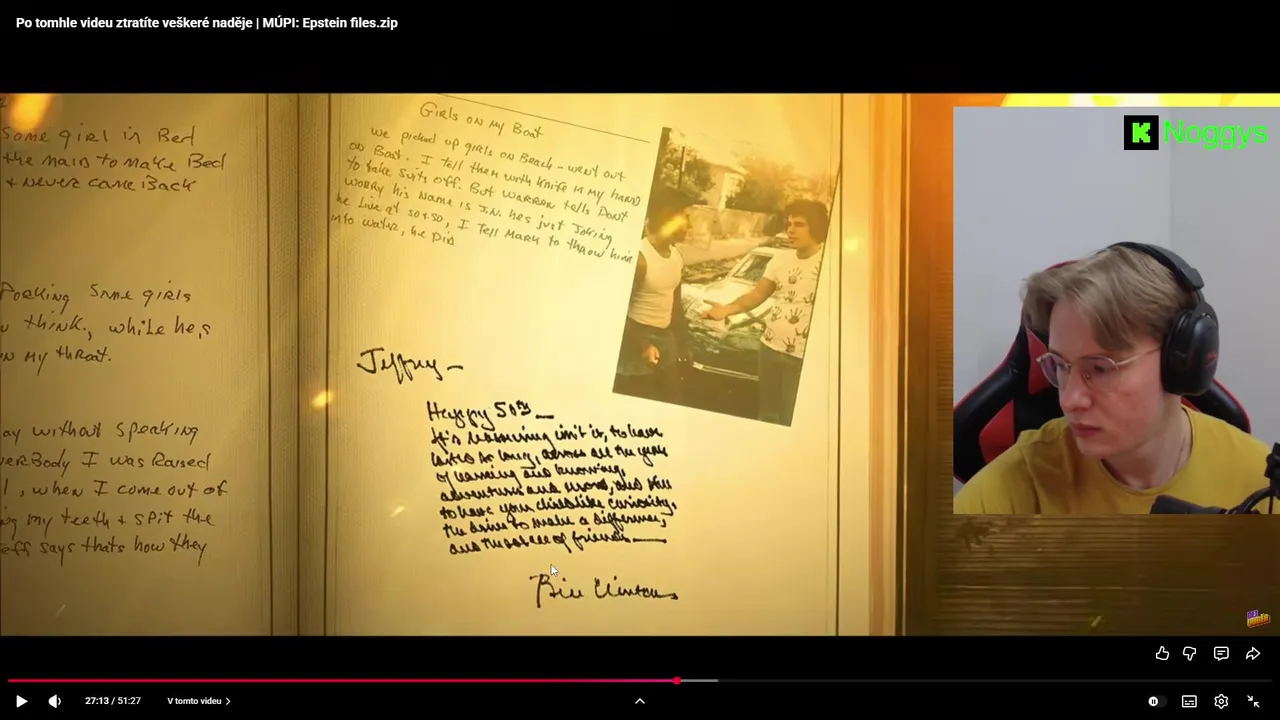 Po tomhle videu ztratíte veškeré naděje | MÚPI: Epstein files.zip
K Noggys
Some girl in Bed
the maid to make Bed
+ Never came Back
Porking Some girls
think, while he,s
my throat.
ay without speaking
verBody I was Raised
, when I come out of
my teeth + spit the
eff says thats how they
Girls on my Boat
we picked up girls on Beach - went out
on Boat. I tell them with knife in my hand
to take suits off. But Warren tells Dont
worry his name is J.N. hes just Joking
he Live at so+so, I tell Mark to throw him
into water, he Did
Jeffrey —
Happy 50th —
It's reassuring isn't it, to have
lasted as long, across all the years
of learning and knowing,
adventures and, and
to have your childlike curiosity,
the drive to make a difference,
and the solace of friends —
Bill Clinton
27:13 / 51:27
V tomto videu